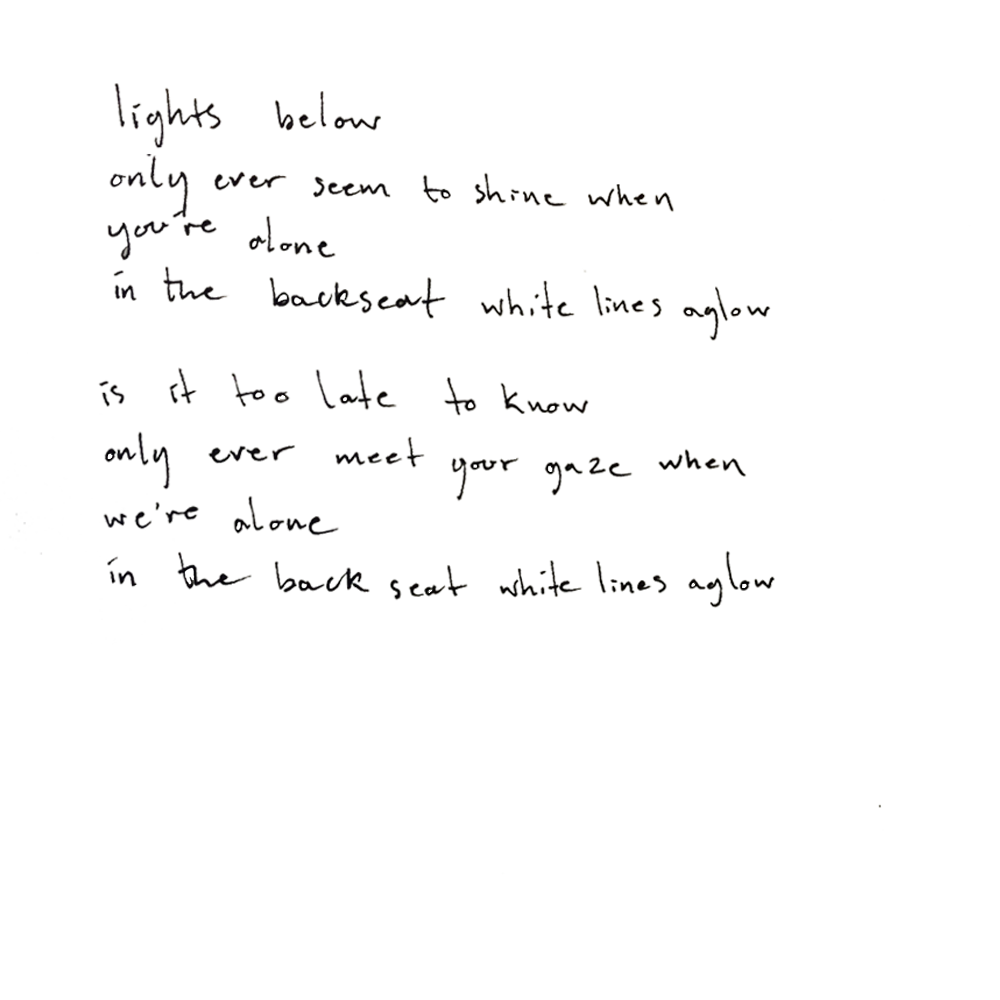 lights below
only ever seem to shine when
you're alone
in the backseat white lines aglow
is it too late to know
only ever meet your gaze when
we're alone
in the back seat white lines aglow